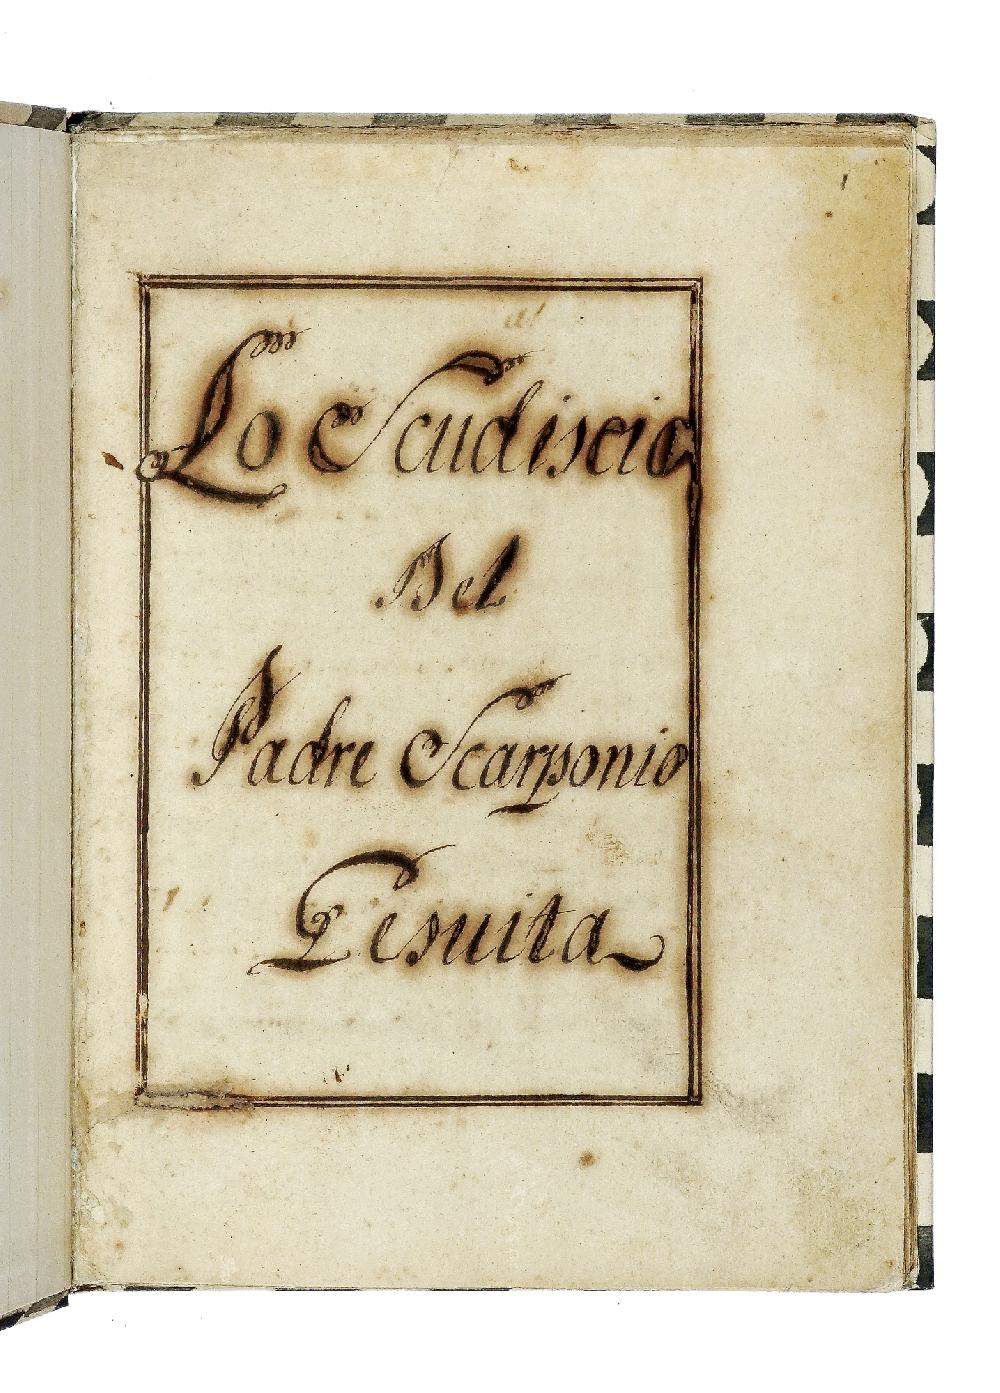 Lo Scudiscio
Del
Padre Scarponio
Gesuita